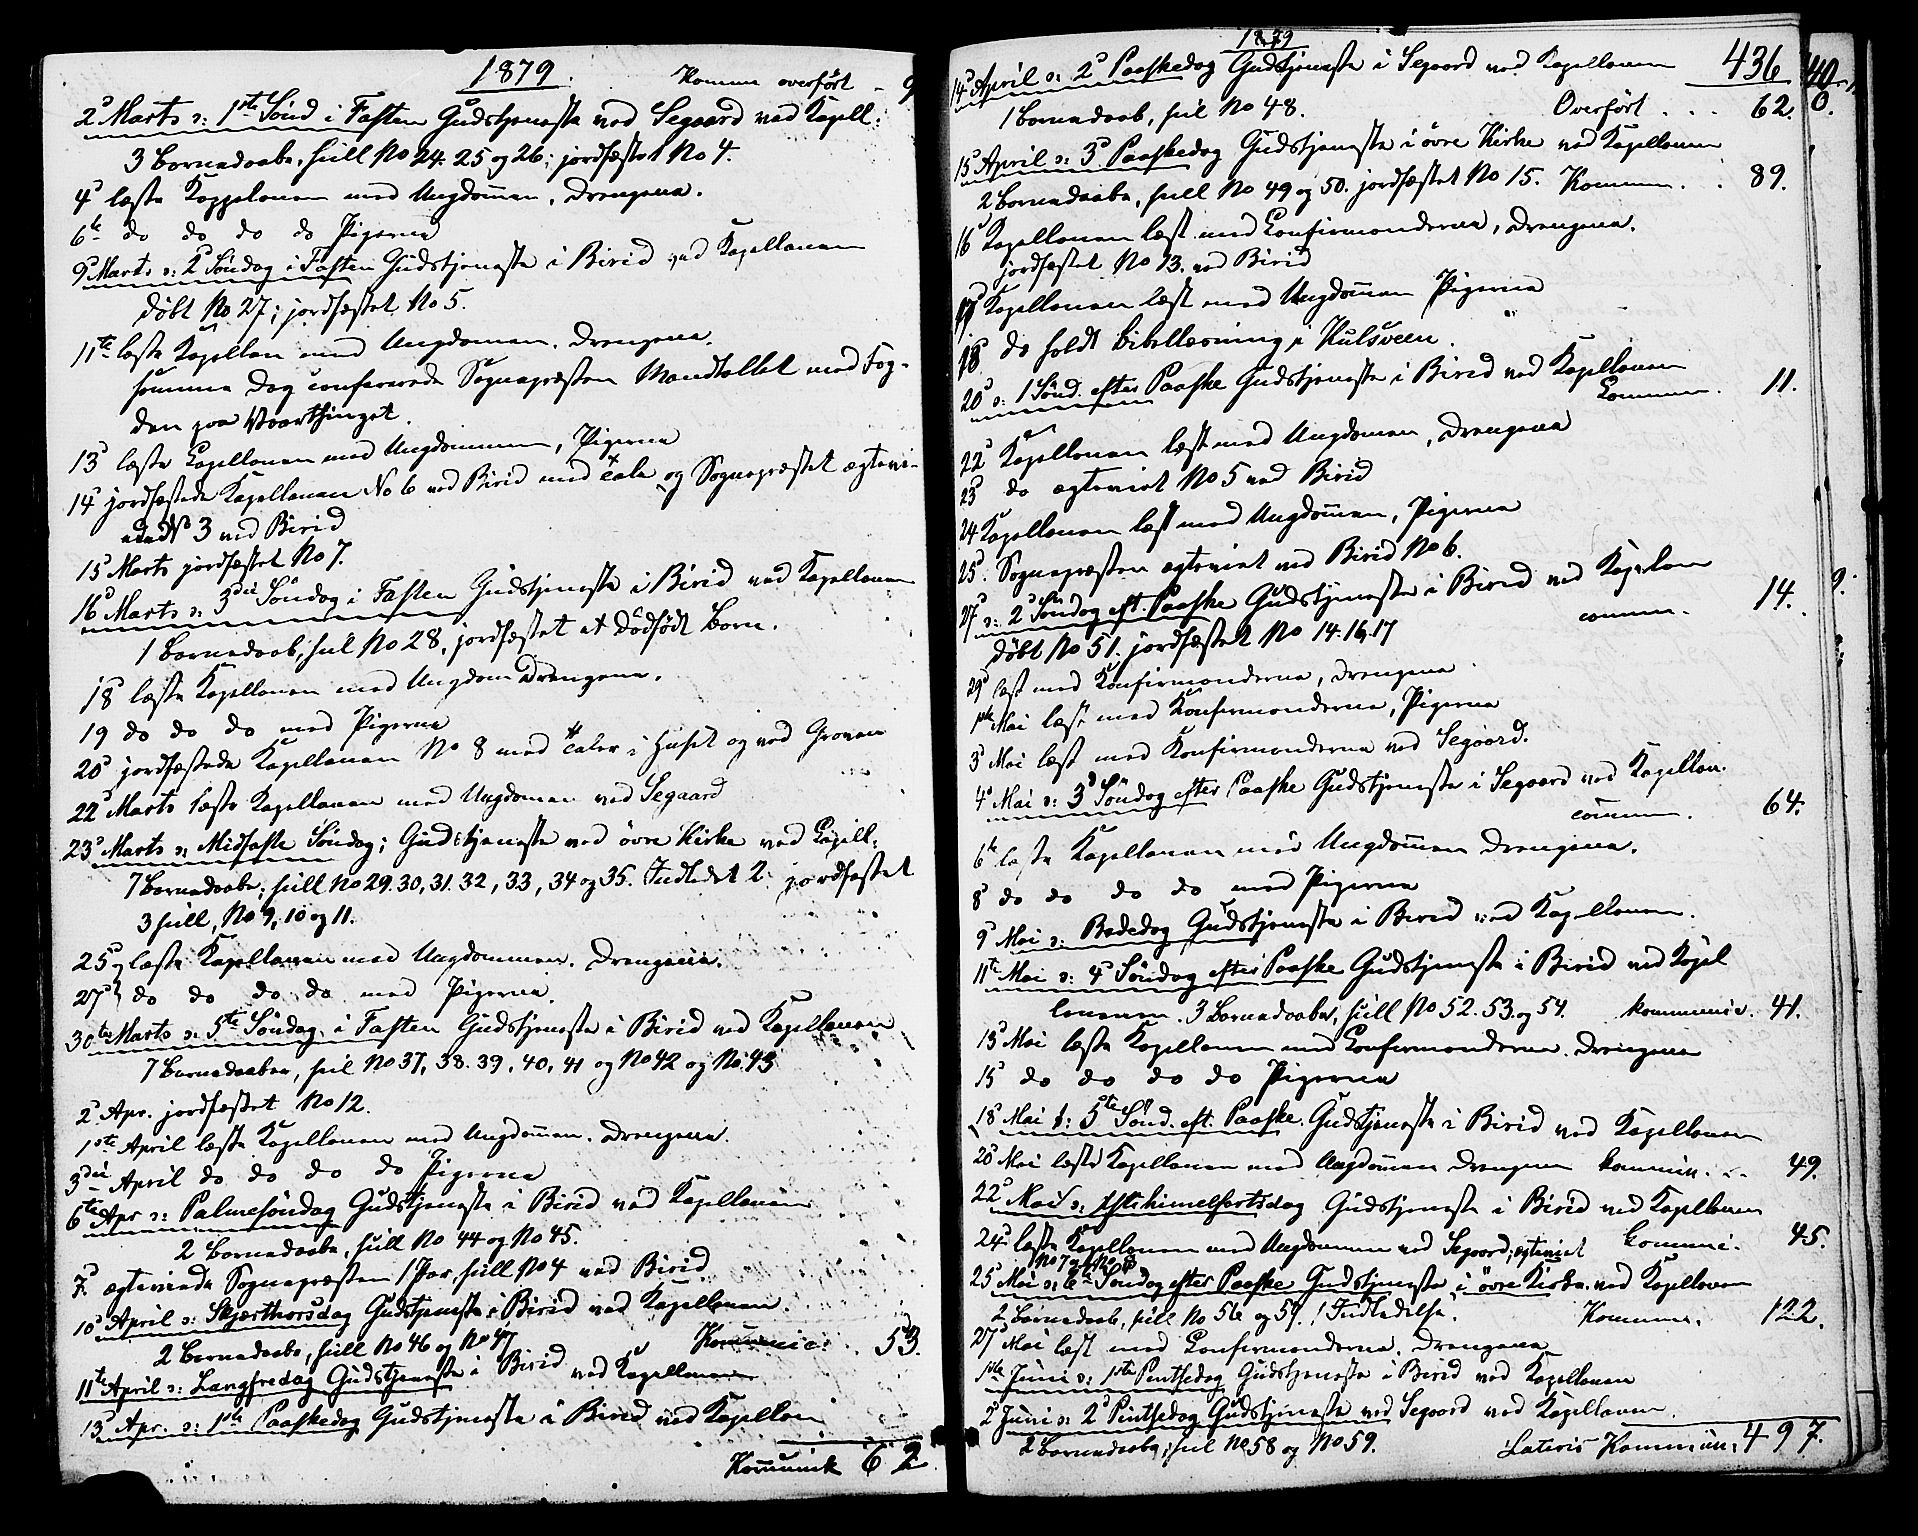 1879.
Komm overført - 9
2d Marts ɔ: 1ste Sönd i Fasten Gudstjeneste ved Segaard ved Kapell:
3 Barnedaabe, hill No 24. 25 og 26; jordfæstet No 4.
4d læste Kappelanen med Ungdommen, Drengene.
6te do do do do Pigerne
9d Marts ɔ: 2d Söndag i Fasten Gudstjeneste i Birid ved Kapellanen
Döbt No 27; jordfæstet No 5.
11te læste Kapellan med Ungdomen. Drengene.
samme Dag confererede Sognepræsten Mandtallet med Fog-
den paa Vaarthinget.
13d læste Capellanen med Ungdommen, Pigerne
14d jordfæstede Kapellanen No 6 ved Birid med Tale og Sognepræstet ægtevi-
No 3 ved Birid
15d Marts jordfæstet No 7.
16d Marts ɔ: 3die Söndag i Fasten Gudstjeneste i Birid ved Kapellanen
1 Barnedaab, hil No 28, jordfæstet et dödfödt Barn.
18d læste Kapellanen med Ungdom Drengene.
19 do do do med Pigerne
20d jordfæstede Kapellanen No 8 med Taler i Huset og ved Graven
22d Marts læste Kapellanen med Ungdomen ved Segaard
23d Marts ɔ: Midfaste Söndag; Gudstjeneste ved övre Kirke ved Capell:
7 Barnedaabe; hill No 29. 30, 31. 32, 33, 34 og 35. Indledet 2. jordfæstet
3 hill, No 9, 10 og 11.
25d læste Kapellanen med Ungdommen. Drengene.
27d do do do do med Pigerne
30te Marts ɔ: 5te Söndag i Fasten Gudstjeneste i Birid ved Kapellanen
7 Barnedaaben, hil No 37, 38. 39, 40, 41 og No 42 og No. 43
2d Apr. jordfæstet No 12.
1ste April læste Kapellanen med Ungdommen. Drengene.
3die April do do do do Pigerne
6te Apr ɔ: Palmesöndag Gudstjeneste i Birid ved Kapellanen
2 Barnedaabe, hill No 44 og No 45.
7d ægteviede Sognepræsten 1 Par, hill No 4 ved Birid.
10d April ɔ: Skjærthorsdag Gudstjeneste i Birid ved Kapellanen.
2 Barnedaabe, hill No 46 og No 47 Kommunic: . . 53.
11te April ɔ: Langfredag Gudstjeneste i Birid ved Kapellanen
13d Apr. ɔ: 1ste Paaskedag Gudstjeneste i Birid ved Kapellan
Kommunik 62
1879
14d April ɔ: 2d Paaskedag Gudstjeneste i Segaard ved Kapellanen 436
1 Barnedaab, hil No 48. Overfört . . . 62.
15d April ɔ: 3d Paaskedag Gudstjeneste i övre Kirke ved Kapellanen
2 Barnedaabe, hill No 49 og 50. jordfæstet No 15. Kommun. . 89.
16d Kapellanen læst med Confirmanderne, Drengene.
jordfæstet No 13. ved Birid
17d Kapellanen læst med Ungdommen Pigerne
18d do holdt Bibellæsning i Hulsveen.
20d ɔ: 1 Sönd. efter Paaske Gudstjeneste i Birid ved Kapellanen
Commun. 11.
22d Kapellanen læst med Ungdomen, Drengene
23d do ægteviet No 5 ved Birid
24 Kapellanen læst med Ungdommen, Pigerne
25d. Sognepræsten ægteviet ved Birid No 6.
27d ɔ: 2d Söndag eft. Paaske Gudstjeneste i Birid ved Kapelan
comm. 14.
Döbt No 51. jordfæstet No 14. 16. 17
29d læst med Konfirmanderne, Drengene
1ste Mai læst med Konfirmanderne, Pigerne
3d Mai læst med Konfirmanderne ved Segaard.
4d Mai ɔ: 3d Söndag efter Paaske Gudstjeneste i Segaard ved Kapellan.
comm. 64.
6te læste Kapellanen med Ungdommen Drengene.
8d do do do do med Pigerne
9d Mai ɔ: Bededag Gudstjeneste i Birid ved Kapellanen.
11te Mai ɔ: 4d Söndag efter Paaske Gudstjeneste i Birid ved Kapel
lanen. 3 Barnedaabe, hill No 52. 53. og 54. kommunic. 41.
13d Mai læste Kapellanen med Confirmanderne. Drengene
15d do do do do Pigerne
18d Mai ɔ: 5te Sönd. eft. Paaske. Gudstjeneste i Birid ved Kapellanen
20d Mai læste Kapellanen med Ungdommen Drengene kommun. . . 49.
22d Mai ɔ: Christihimmelfartsdag Gudstjeneste i Birid ved Kapellanen
24d læste Kapellanen med Ungdommen ved Segaard; ægteviet Commun. 45.
No 7 og No 8
25d Mai ɔ: 6te Söndag efter Paaske Gudstjeneste i övre Kirke ved Kapellanen
2 Barnedaab, hill No 56 og 57. 1 Indledelse. Kommun. 122.
27d Mai læst med Confirmanderne. Drengene
1ste Juni ɔ: 1ste Pintsedag Gudstjeneste i Birid ved Kapellanen
2d Juni ɔ: 2d Pintsedag Gudstjeneste ved Segaard ved Kapellanen.
2 Barnedaabe, hil No 58 og No 59. Lateris Kommun. 497.